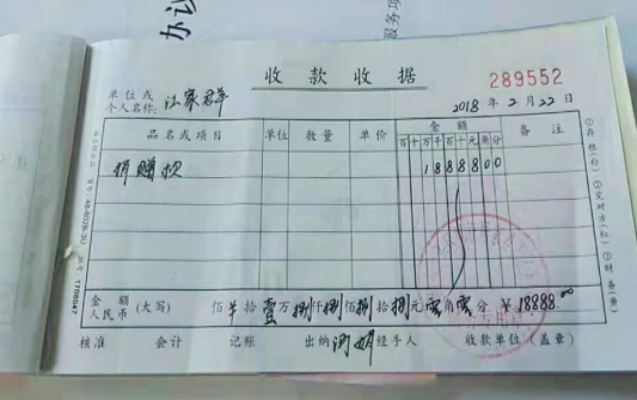 办认
服务项
收款收据
289552
单位或
个人名称：江家群
2018年2月22日
品名或项目 单位 数量 单价 金额 备注
百十万千百十元角分
捐赠款 1888800
金额
人民币 (大写) 佰 拾壹万捌仟捌佰捌拾捌元零角零分 ¥18888.00
核准 会计 记账 出纳 经手人 收款单位（盖章）
①存根(白) ②交对方(红) ③财务(黄)
1708047